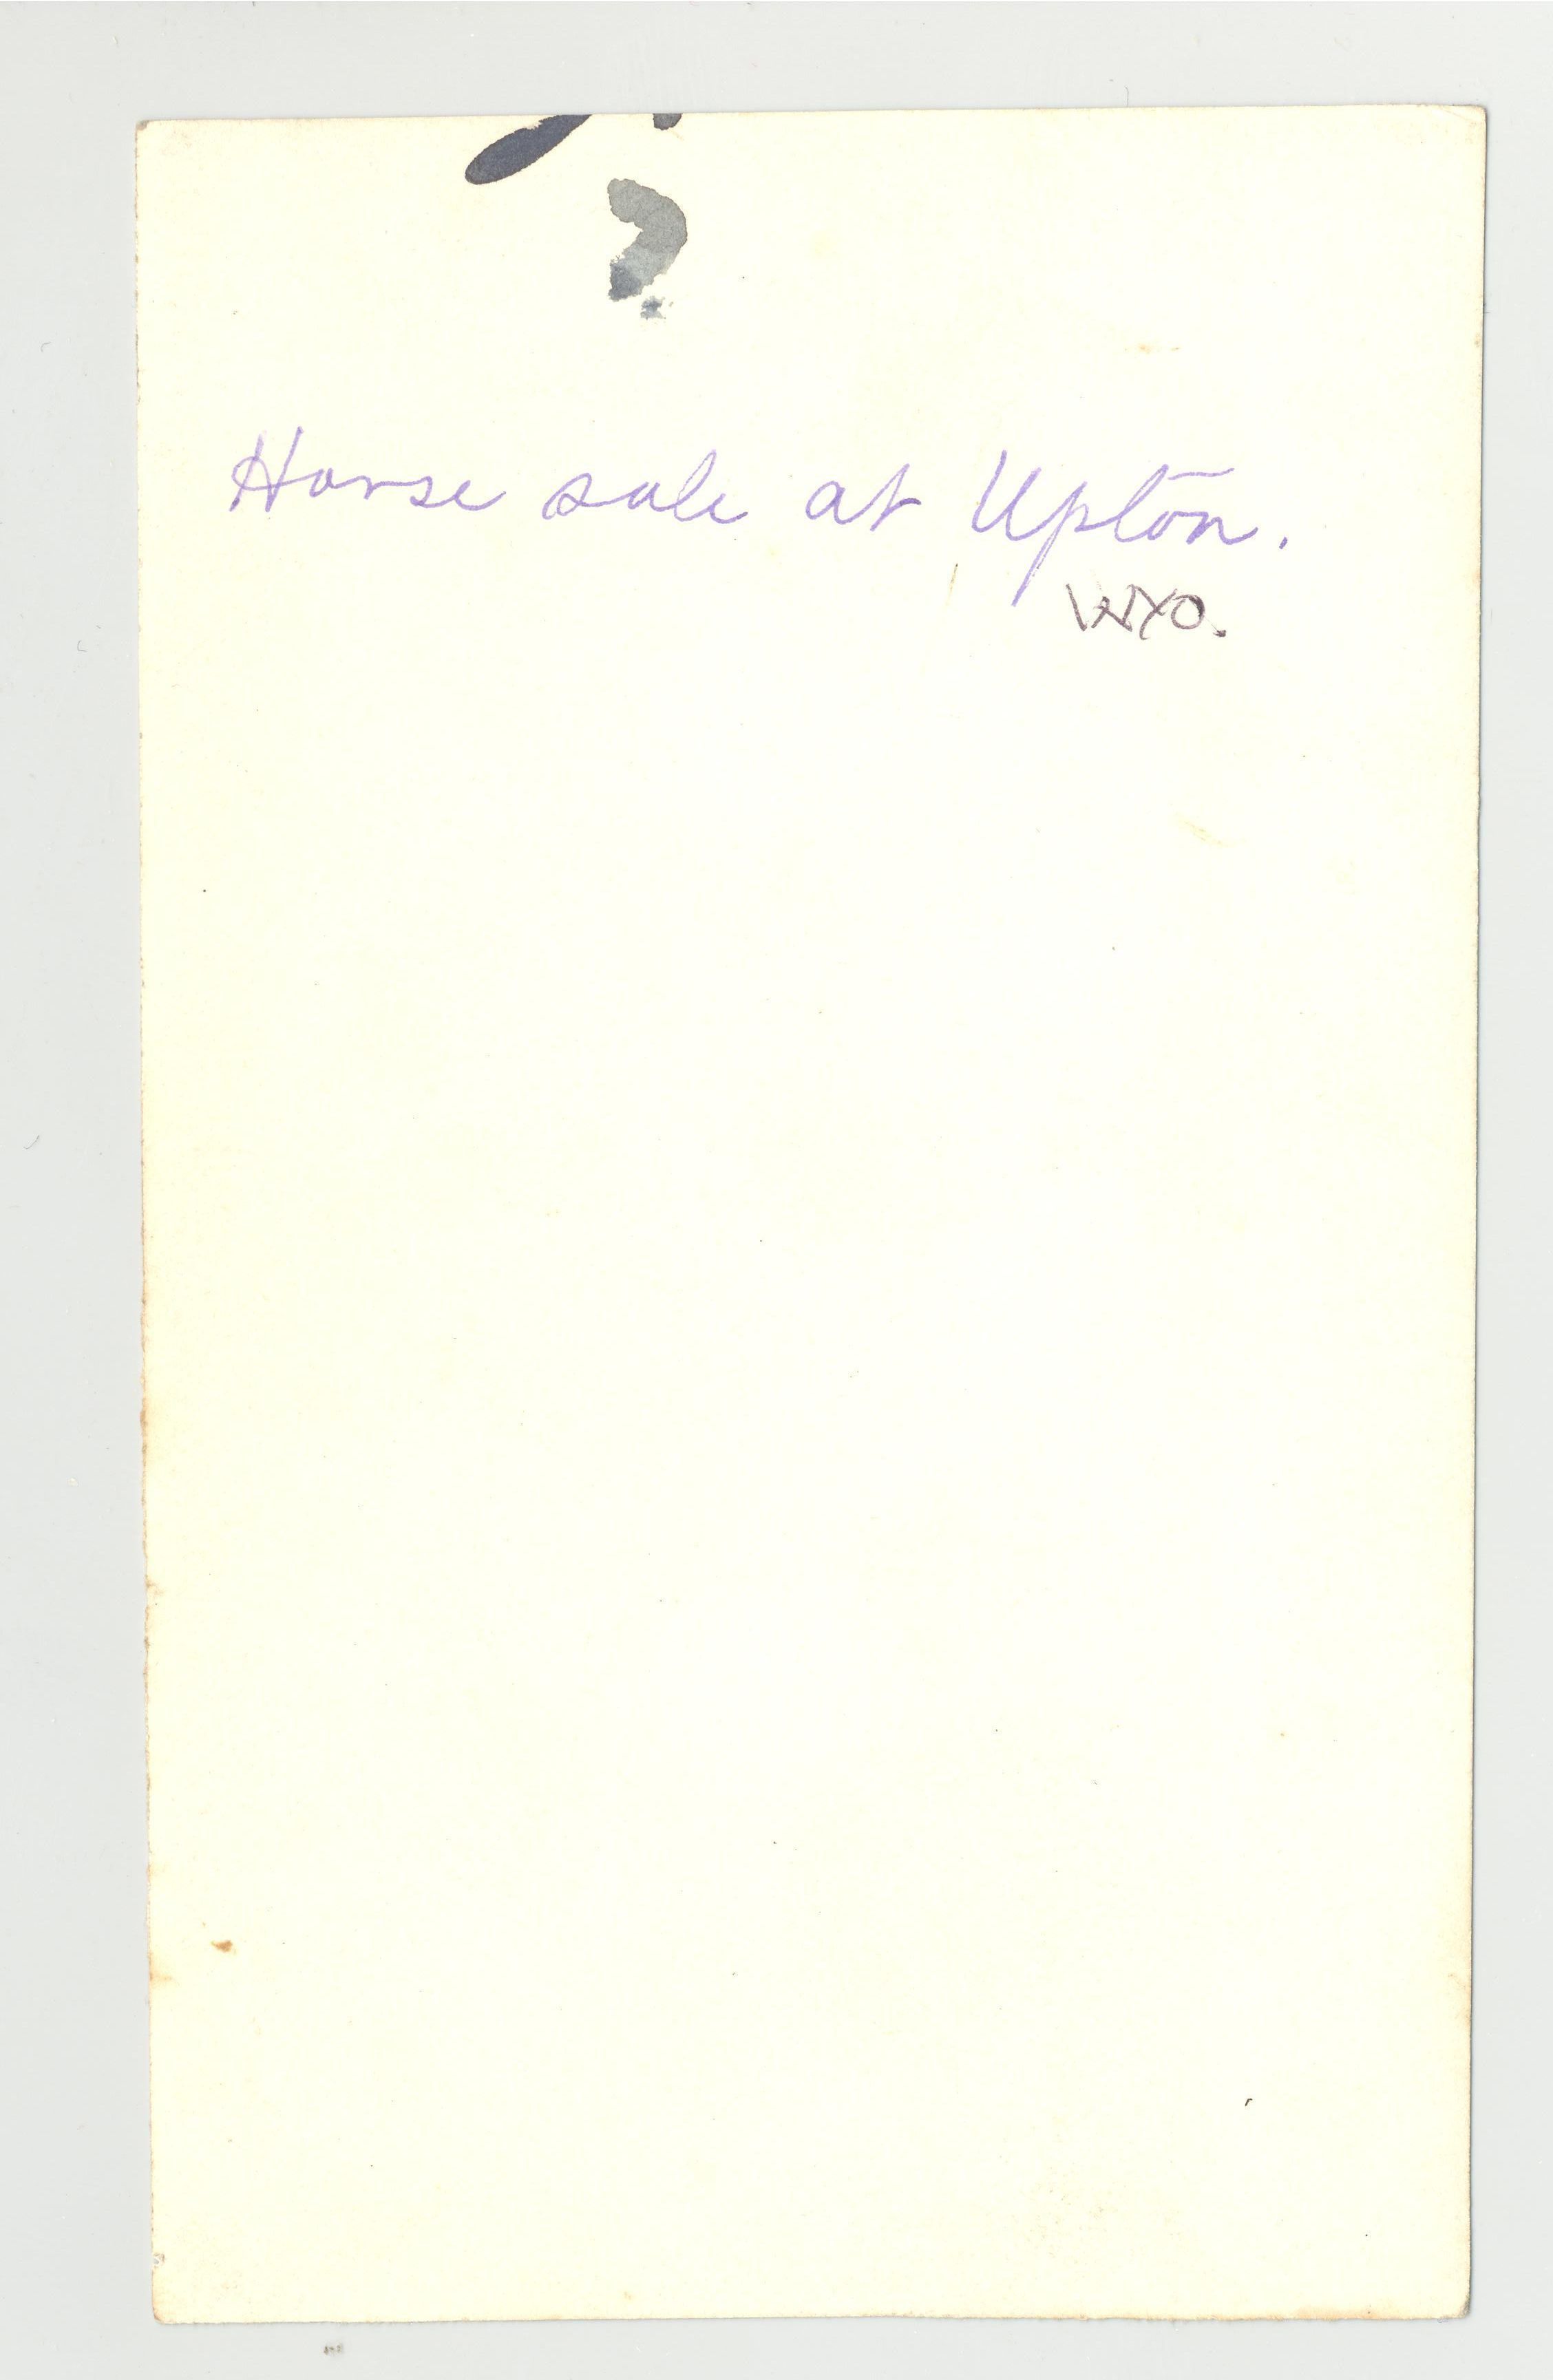 Horse sale at Upton.
WYO.